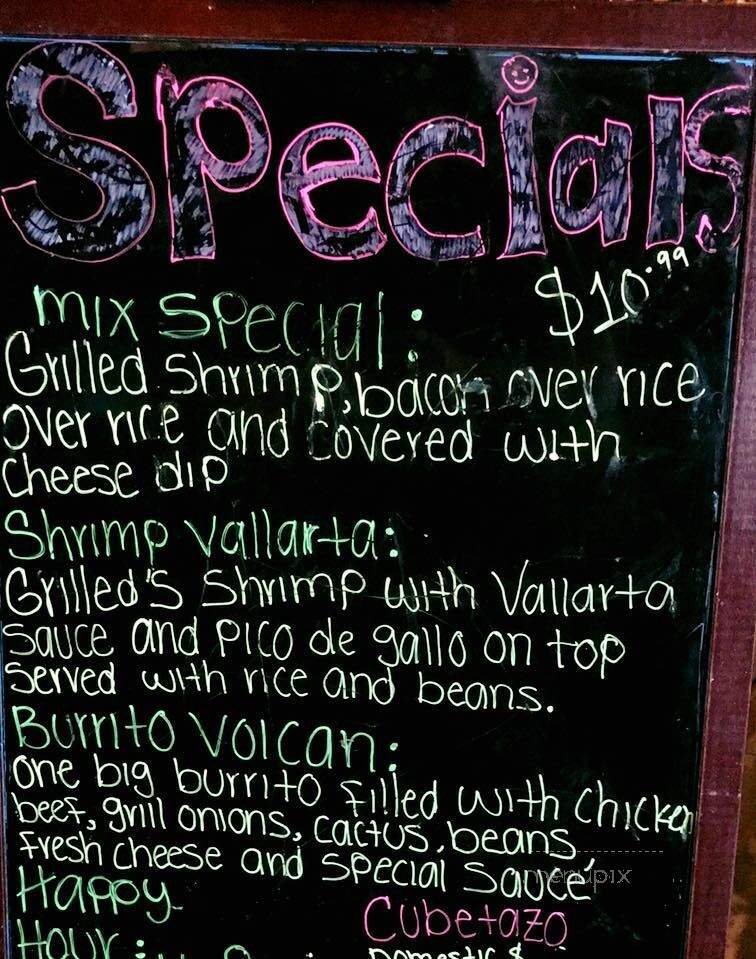 Specials
mix special: $10.99
Grilled Shrimp, bacon over rice
over rice and covered with
cheese dip
Shrimp Vallarta:
Grilled's Shrimp with Vallarta
sauce and pico de gallo on top
served with rice and beans.
Burrito Volcan:
one big burrito filled with chicken
beef, grill onions, cactus, beans
fresh cheese and special sauce
menupix
Happy
Cubetazo
Hour:
Domestic $